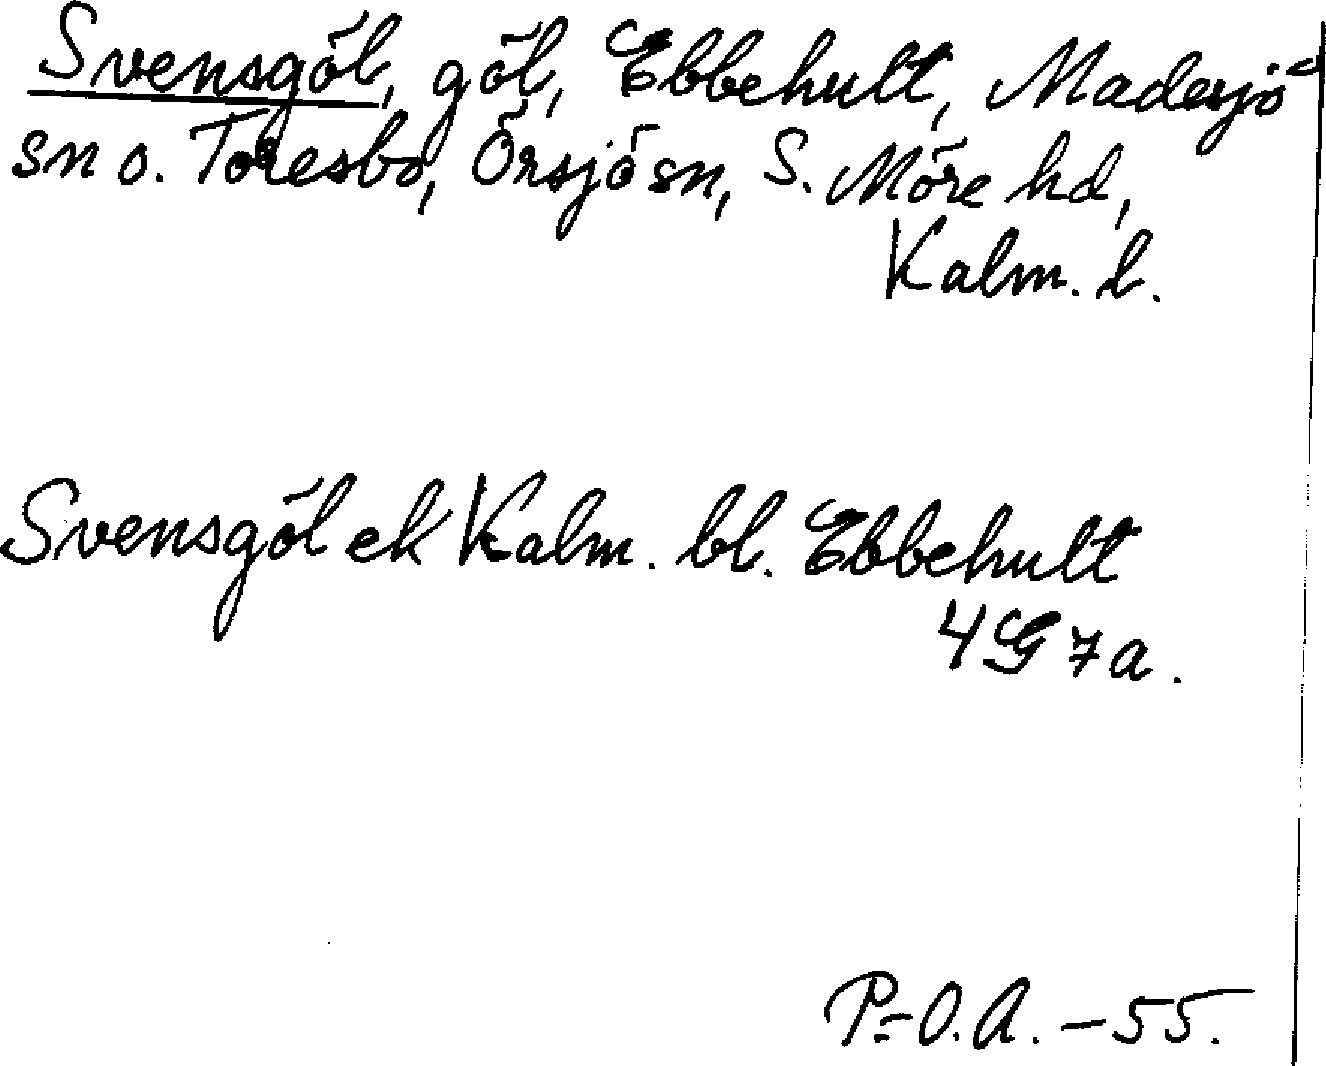 Svensgöl, göl, Ebbehult, Madesjö
sn o. Toresbo, Örsjö sn, S. Möre hd,
Kalm. l.
Svensgöl ek Kalm. bl. Ebbehult
4G 7a.
P=O.A. - 55.